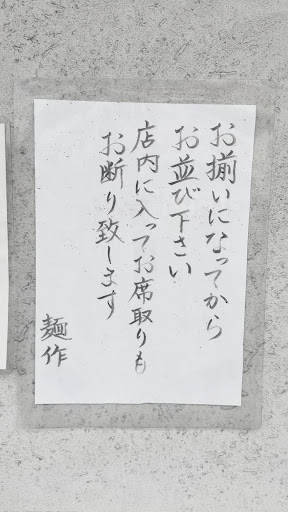 お揃いになってから
お並び下さい
店内に入ってお席取りも
お断り致します
麺作